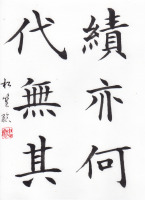 績亦何
代無其